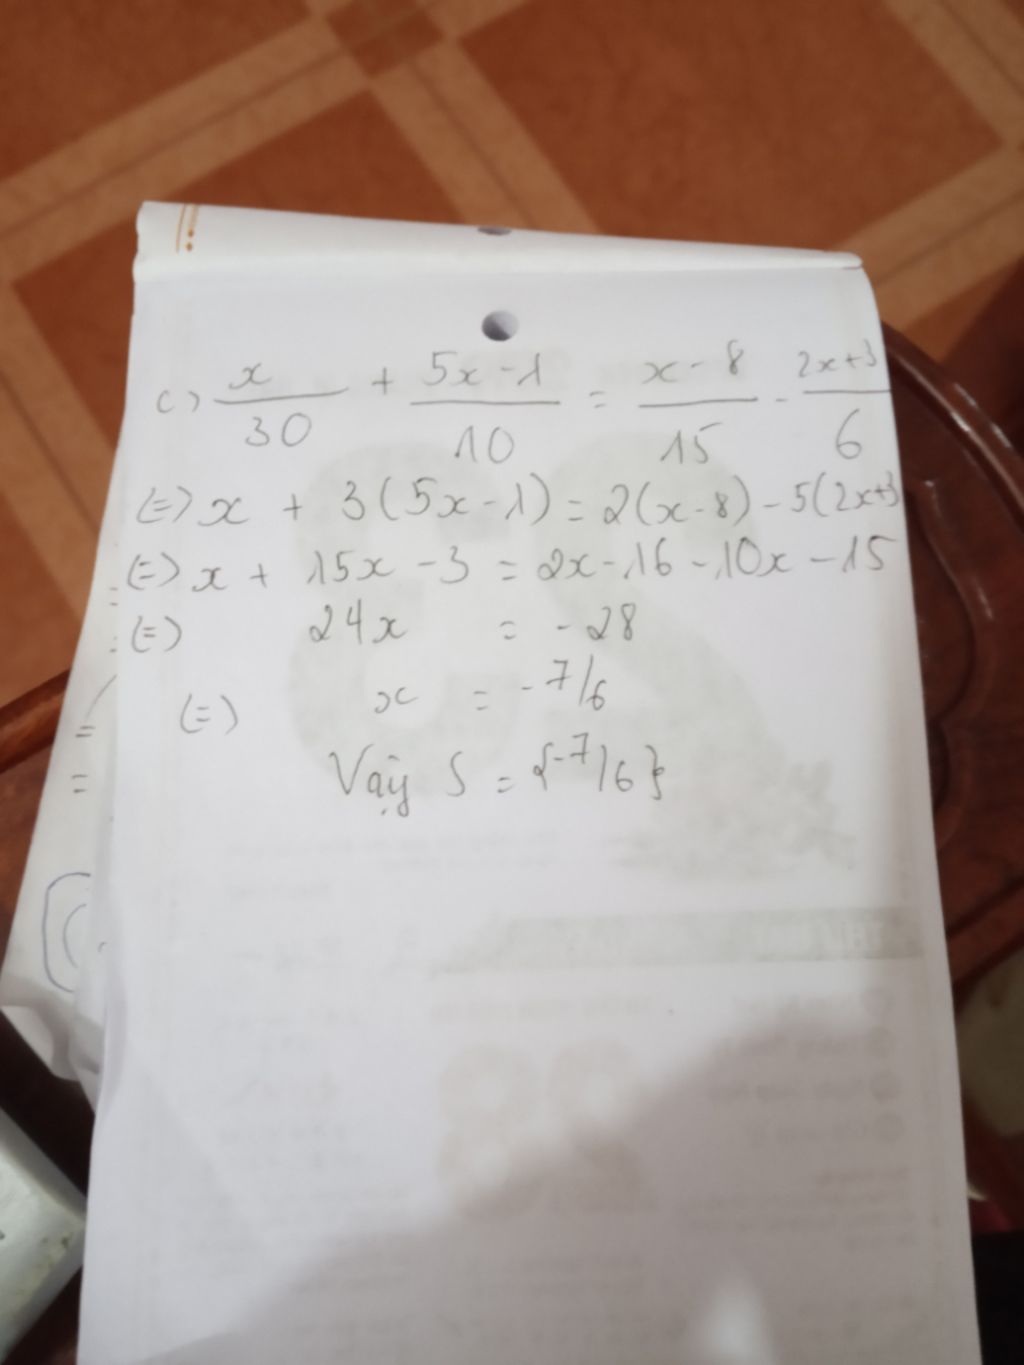 c) x/30 + 5x-1/10 = x-8/15 - 2x+3/6
(=) x + 3(5x-1) = 2(x-8) - 5(2x+3
(=) x + 15x - 3 = 2x-16 - 10x - 15
(=) 24x = -28
(=) x = -7/6
Vậy S = {-7/6}